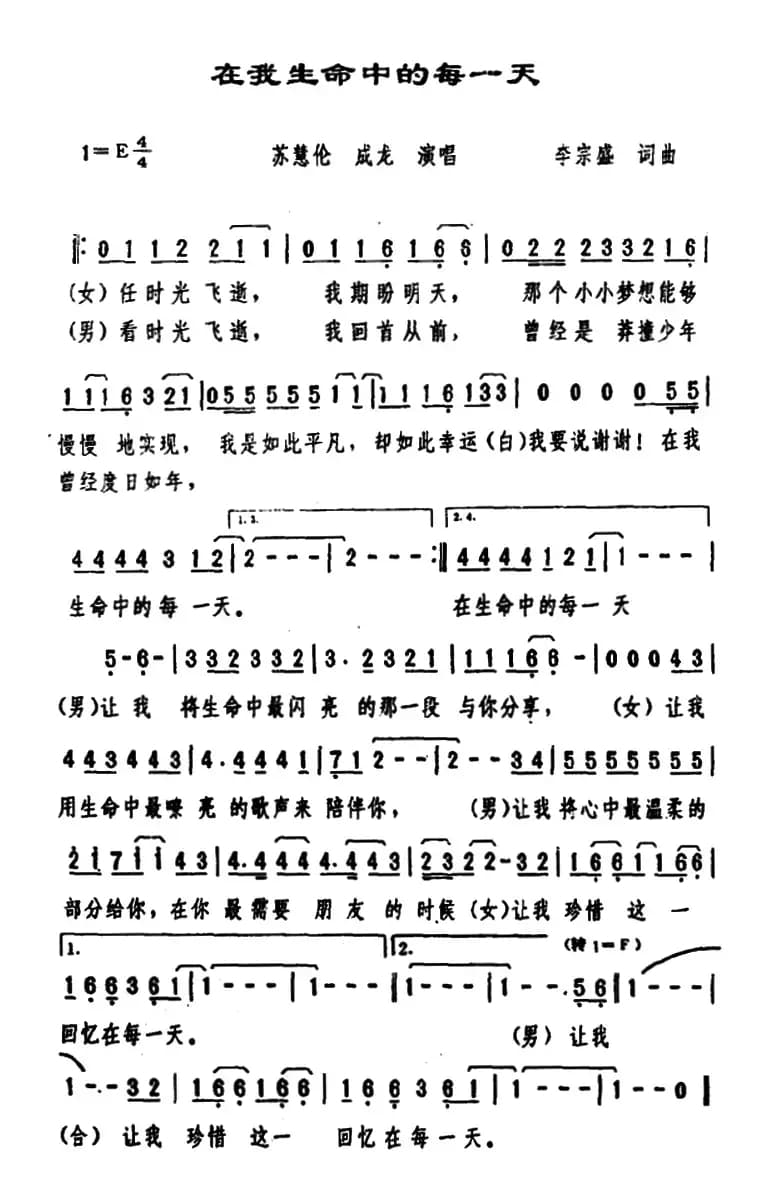 在我生命中的每一天
1=E 4/4 苏慧伦 成龙 演唱 李宗盛 词曲
‖: 0 1 1 2 2 1 1 | 0 1 1 6 1 6 6 | 0 2 2 2 3 3 2 1 6 |
(女)任时光飞逝, 我期盼明天, 那个小小梦想能够
(男)看时光飞逝, 我回首从前, 曾经是 莽撞少年
1 1 1 6 3 2 1 | 0 5 5 5 5 5 1 1 | 1 1 1 6 1 3 3 | 0 0 0 0 5 5 |
慢慢 地实现, 我是如此平凡, 却如此幸运(白)我要说谢谢! 在我
曾经度日如年,
1. 3. 2. 4.
4 4 4 4 3 1 2 | 2 - - - | 2 - - - :‖ 4 4 4 4 1 2 1 | 1 - - - |
生命中的每 一天。 在生命中的每一 天
5 - 6 - | 3 3 2 3 3 3 2 | 3 . 2 3 2 1 | 1 1 1 6 6 - | 0 0 0 4 3 |
(男)让 我 将生命中最闪 亮 的那一段 与你分享, (女)让我
4 4 3 4 4 4 3 | 4 . 4 4 4 1 | 7 1 2 - - | 2 - - 3 4 | 5 5 5 5 5 5 5 |
用生命中最嘹 亮 的歌声来 陪伴你, (男)让我将心中最温柔的
2 1 7 1 1 4 3 | 4 . 4 4 4 4 . 4 4 3 | 2 3 2 2 - 3 2 | 1 6 6 1 1 6 6 |
部分给你,在你 最需要 朋 友 的 时候 (女)让我 珍惜 这 一
1. 2. (转1=F)
1 6 6 3 6 1 | 1 - - - | 1 - - - | 1 - - - | 1 - - . 5 6 | 1 - - - |
回忆在每一天。 (男) 让我
1 - - 3 2 | 1 6 6 1 6 6 | 1 6 6 3 6 1 | 1 - - - | 1 - - 0 ‖
(合) 让我 珍惜 这一 回忆在每一天。